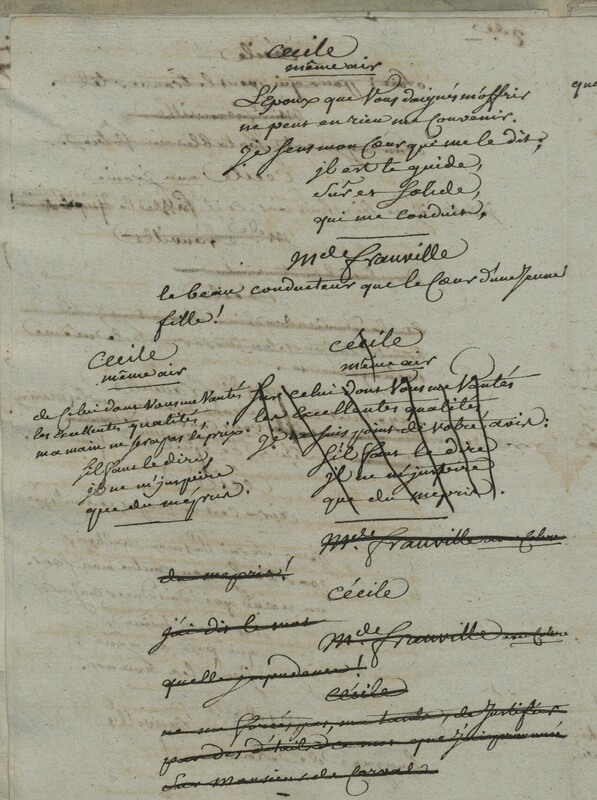 cecile
même air
L'époux que Vous daignés m'offrir
ne peut en rien me Convenir.
je sens mon Cœur qui me le dit;
il est le guide,
sûr et solide,
qui me conduit,
mde franville
le beau conducteur que le Cœur d'une Jeune
fille!
cecile
même air
de Celui dont Vous me Vantés
les excellentes qualités,
ma main ne sera pas le prix.
s'il faut le dire,
il ne m'jnspire
que du mépris.
cécile
même air
Sur celui dont Vous me Vantés
les excellentes qualités,
je ne suis point de Votre avis.
s'il faut le dire
il ne m'jnspire
que du mepris.
Mde franville en Colere
du mepris!
cécile
j'ai dit le mot
Mde franville en Colere
quelle jmpudence!
Cécile
ne me forcés pas, ma tante, de Justifier
par des détails ce mot que J'ai prononcé
Sur Monsieur de